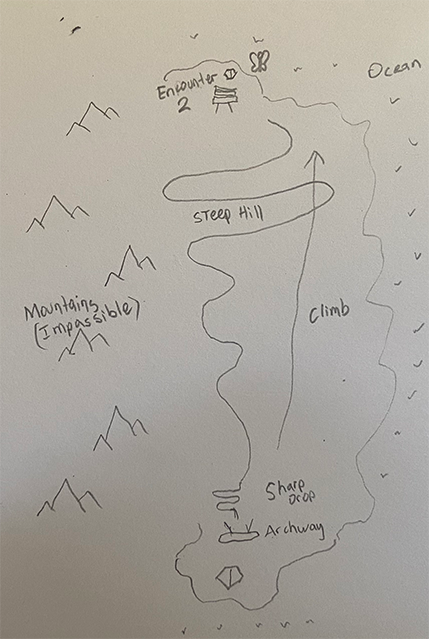 Ocean
Encounter
2
Steep Hill
Mountains
(Impassible)
Climb
Sharp
Drop
Archway